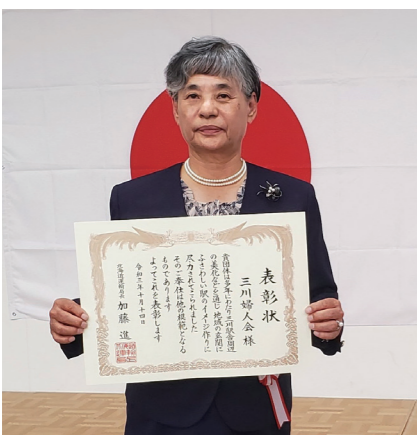 表彰状
三川婦人会 様
貴団体は多年にわたり三川駅舎周辺
の美化などを通じ地域の玄関に
ふさわしい駅のイメージ作りに
尽力されてこられました
そのご奉仕は他の模範となる
ものであります
よってこれを表彰します
令和三年十月十四日
北海道運輸局長 加藤 進